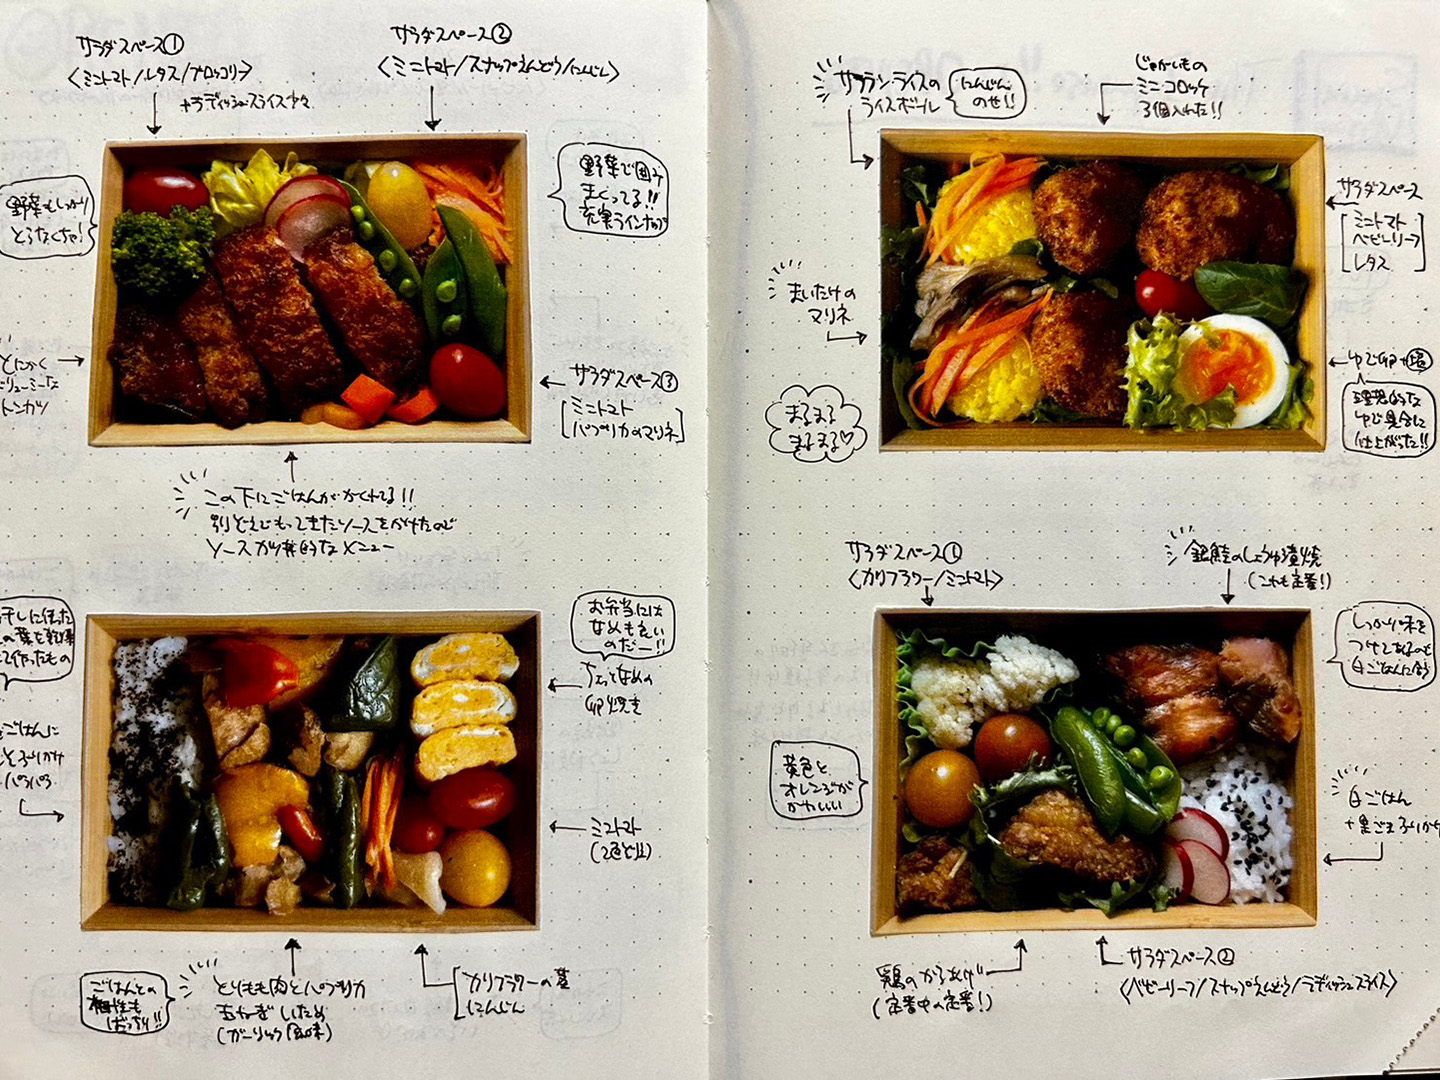 サラダスペース①
〈ミニトマト/レタス/ブロッコリー〉
+ラディッシュスライス少々
サラダスペース②
〈ミニトマト/スナップえんどう/にんじん〉
野菜もしっかり
とらなくちゃ!
野菜で囲み
まくってる!!
充実ラインナップ
とにかく
ボリューミーな
トンカツ
サラダスペース③
ミニトマト
パプリカのマリネ
この下にごはんがかくれてる!!
別どえでもってきたソースをかけたので
ソースカツ丼的なメニュー
干しに使った
の葉を乾燥
て作ったもの
ごはんに
ふりかけ
パラパラ
お弁当には
なめも良い
のだー!!
ちょっとなめの
卵焼き
ミニトマト
(2色どり)
ごはんとの
相性も
ばっちり!!
とりもも肉とパプリカ
玉ねぎいため
(ガーリック風味)
カリフラワーの茎
にんじん
サフランライスの
ライスボール
にんじん
のせ!!
じゃがいもの
ミニコロッケ
3個入れた!!
サラダスペース
ミニトマト
ベビーリーフ
レタス
まいたけの
マリネ
まるまる
まるまる♡
ゆで卵+塩
理想的な
ゆで具合に
仕上がった!!
サラダスペース①
〈カリフラワー/ミニトマト〉
銀鮭のしょうゆ漬焼
(これも定番!)
しっかり味を
つけてあるので
白ごはんに合う
黄色と
オレンジが
かわいい
白ごはん
+黒ごまふりかけ
鶏のからあげ
(定番中の定番!)
サラダスペース②
〈ベビーリーフ/スナップえんどう/ラディッシュスライス〉